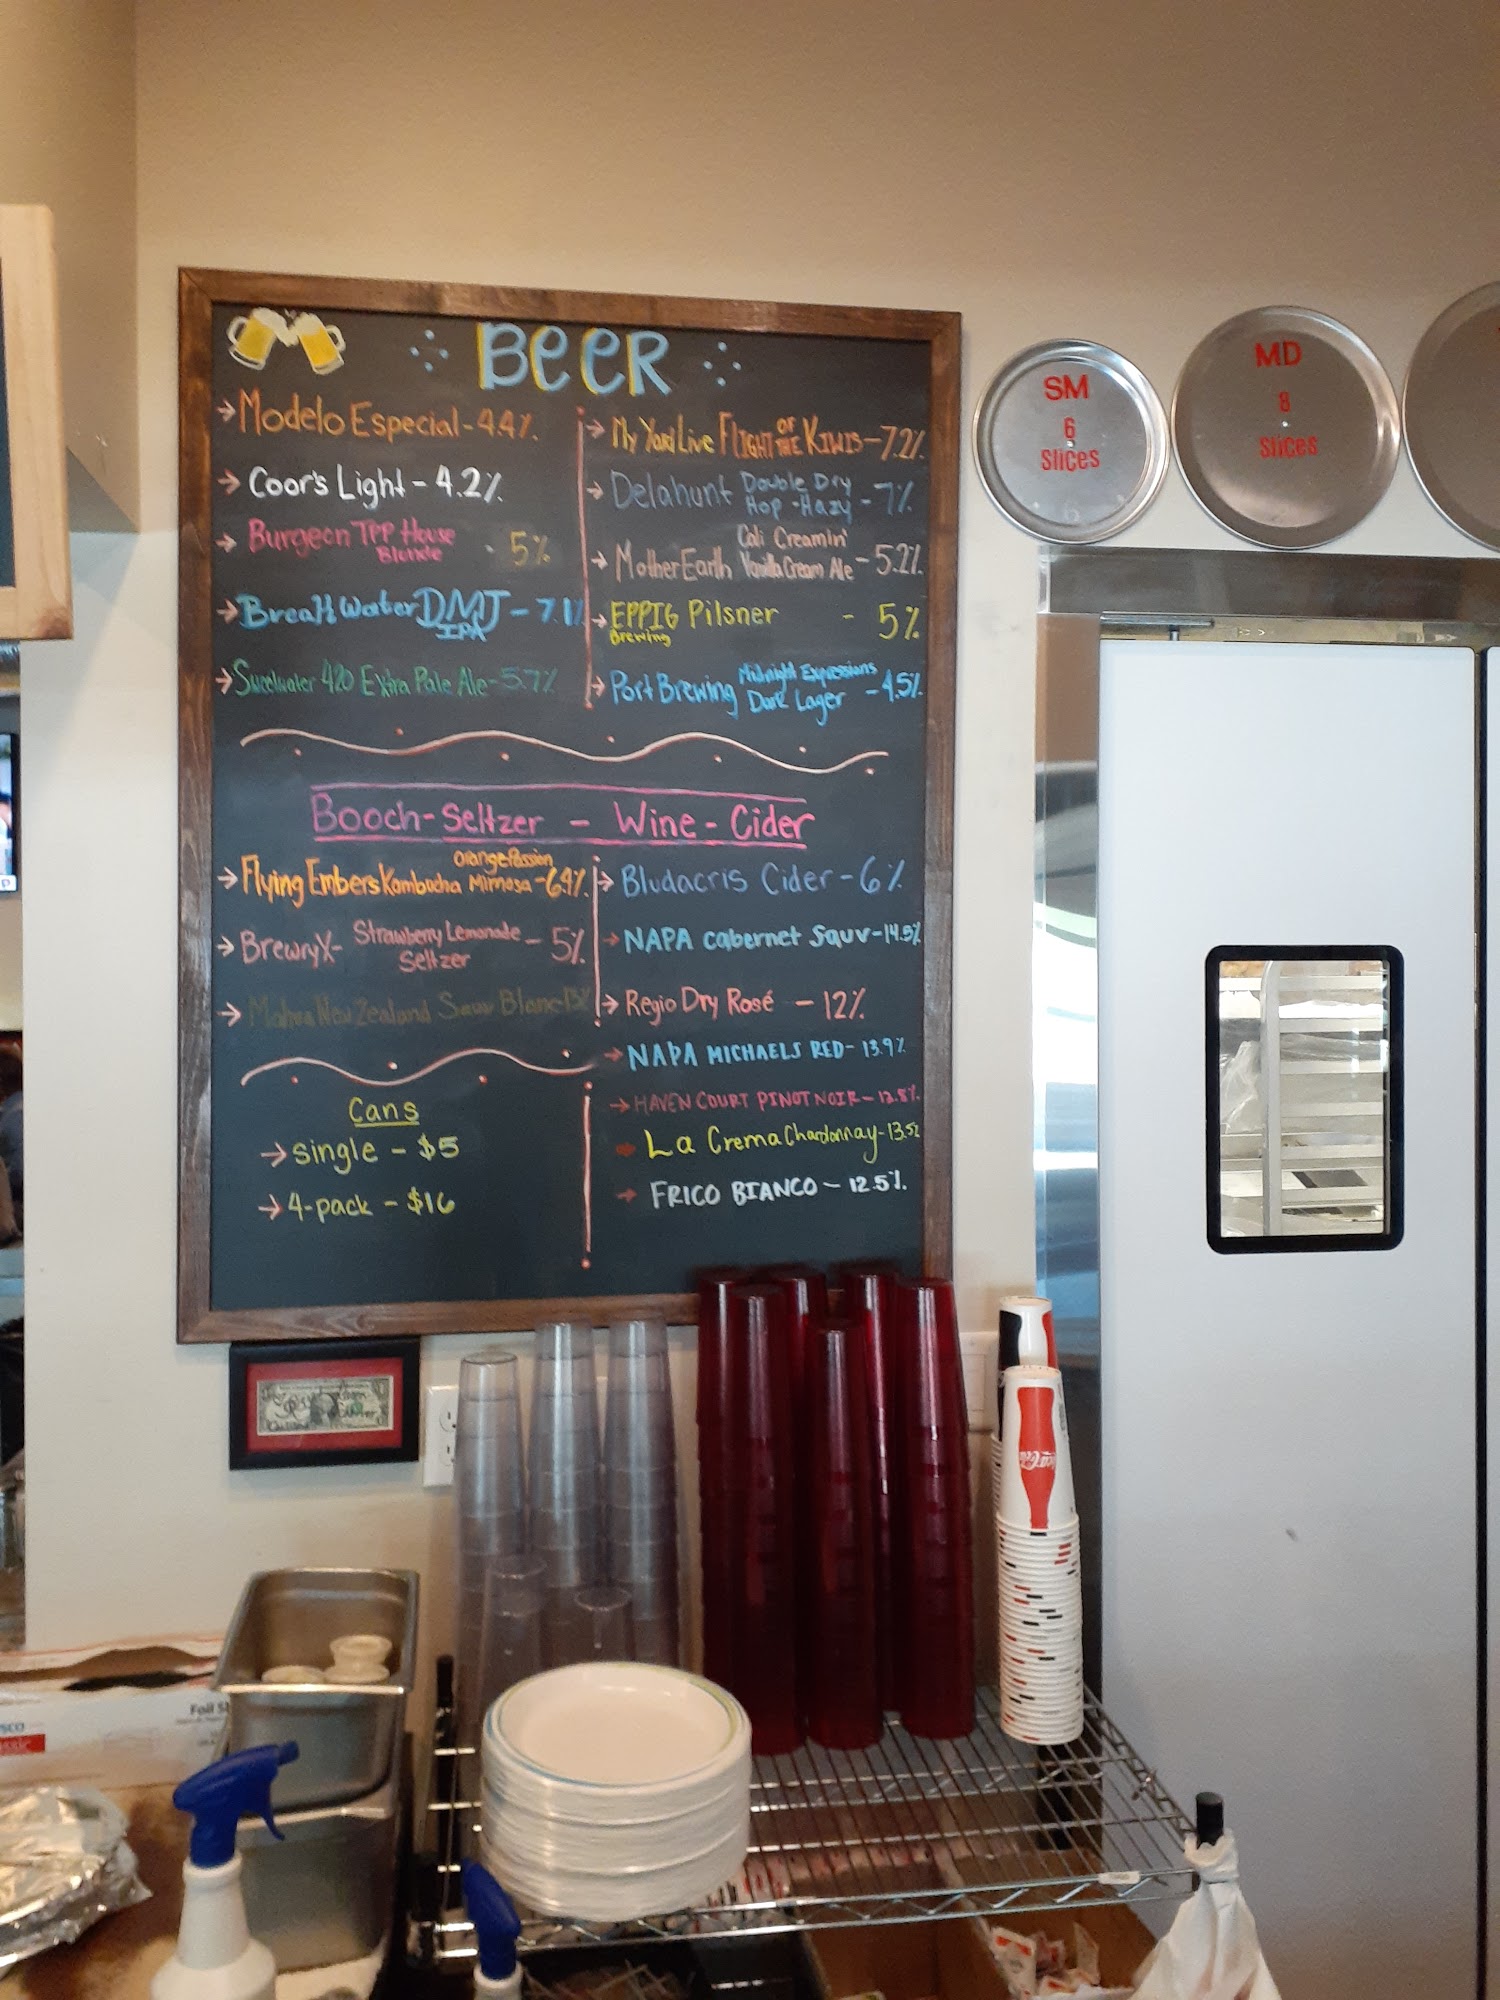 BEER
Modelo Especial - 4.4%
Coor's Light - 4.2%
Burgeon TPP House
Blonde - 5%
Breakwater DMJ - 7.1%
IPA
Sweetwater 420 Extra Pale Ale - 5.7%
My Yard Live FLIGHT OF THE KIWIS - 7.2%
Delahunt Double Dry
Hop - Hazy - 7%
Cali Creamin'
Mother Earth Vanilla Cream Ale - 5.2%
EPPIG Pilsner - 5%
Brewing
Midnight Expressions
Port Brewing Dark Lager - 4.5%
Booch - Seltzer - Wine - Cider
Orange Passion
Flying Embers Kombucha Mimosa - 6.9%
BrewryX - Strawberry Lemonade - 5%
Seltzer
New Zealand Sauv Blanc - 13%
Bludacris Cider - 6%
NAPA cabernet sauv - 14.5%
Regio Dry Rosé - 12%
NAPA MICHAELS RED - 13.9%
HAVEN COURT PINOT NOIR - 12.5%
La Crema Chardonnay - 13.5%
FRICO BIANCO - 12.5%
Cans
single - $5
4-pack - $16
SM
6
Slices
MD
8
Slices
Foil